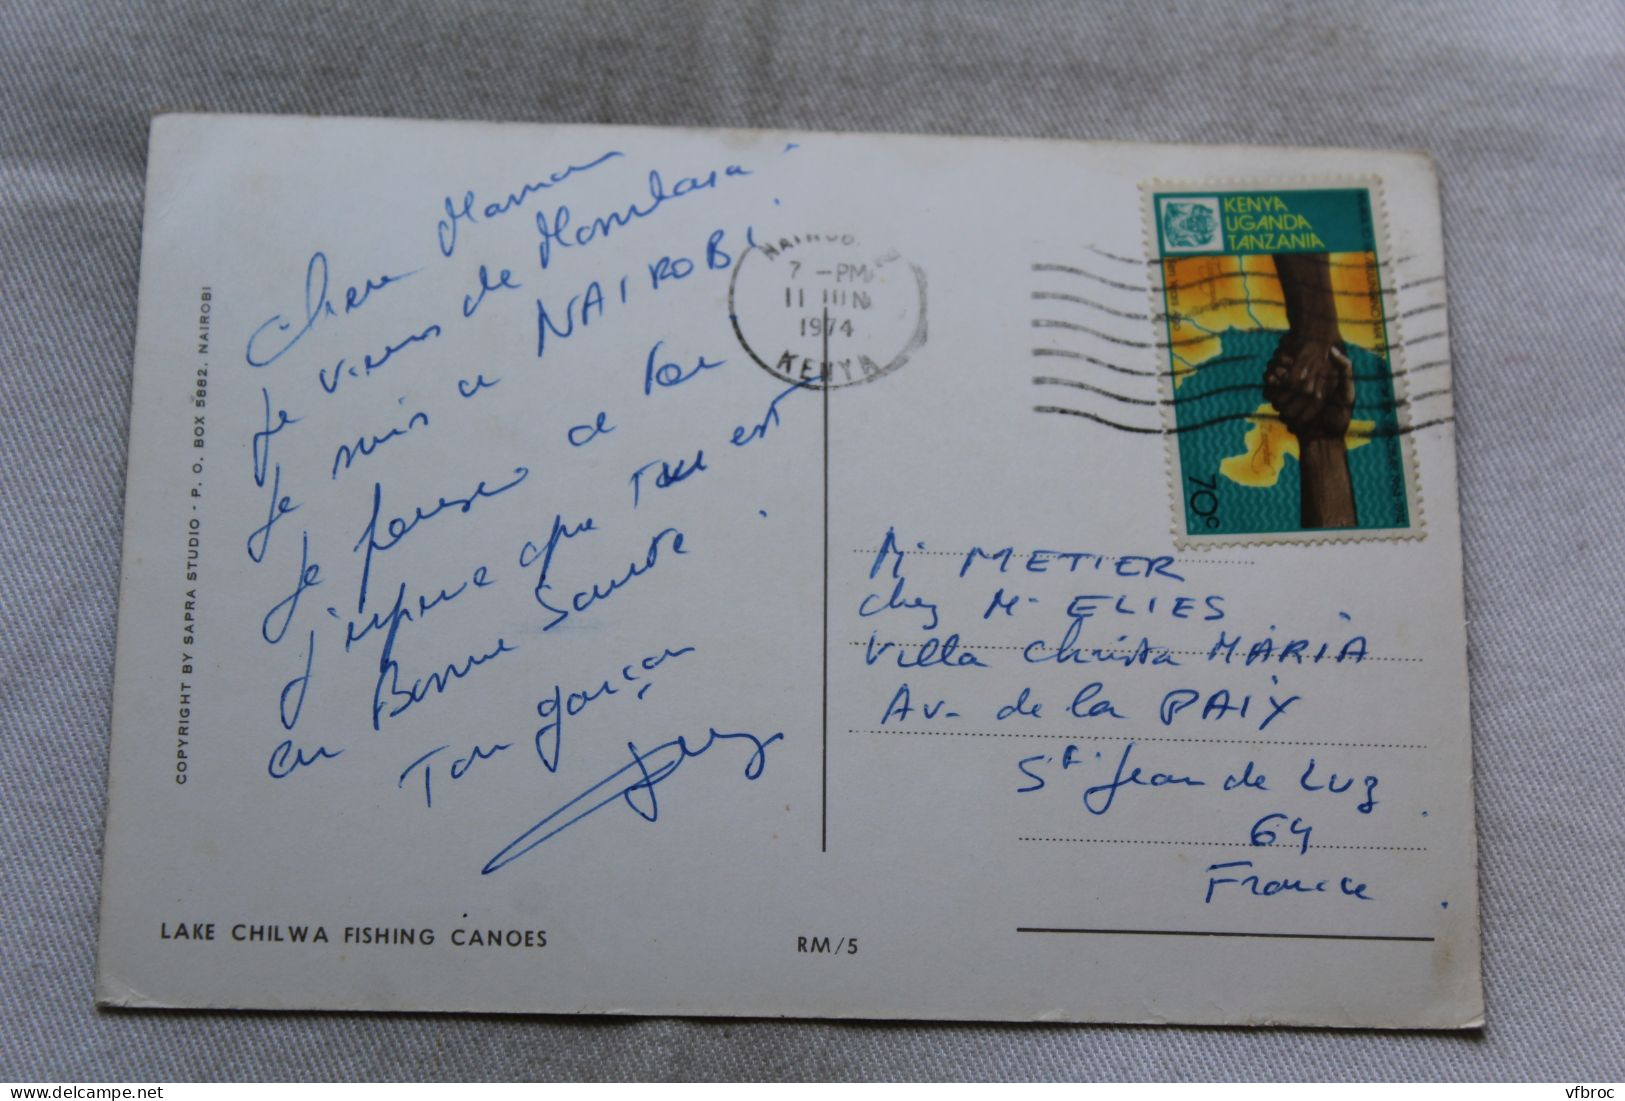 COPYRIGHT BY SAPRA STUDIO - P. O. BOX 5882. NAIROBI
Chere Maman
Je viens de Mombasa
Je suis a NAIROBI
Je pense a toi
J'espere que tout est
en Bonne Sante.
Ton garçon
LAKE CHILWA FISHING CANOES
RM/5
7 - PM
11 JUN
1974
KENYA
KENYA
UGANDA
TANZANIA
70c
M. METIER
chez M. ELIES
Villa Christa MARIA
Av. de la PAIX
St Jean de Luz
64
France
delcampe.net
vfbroc